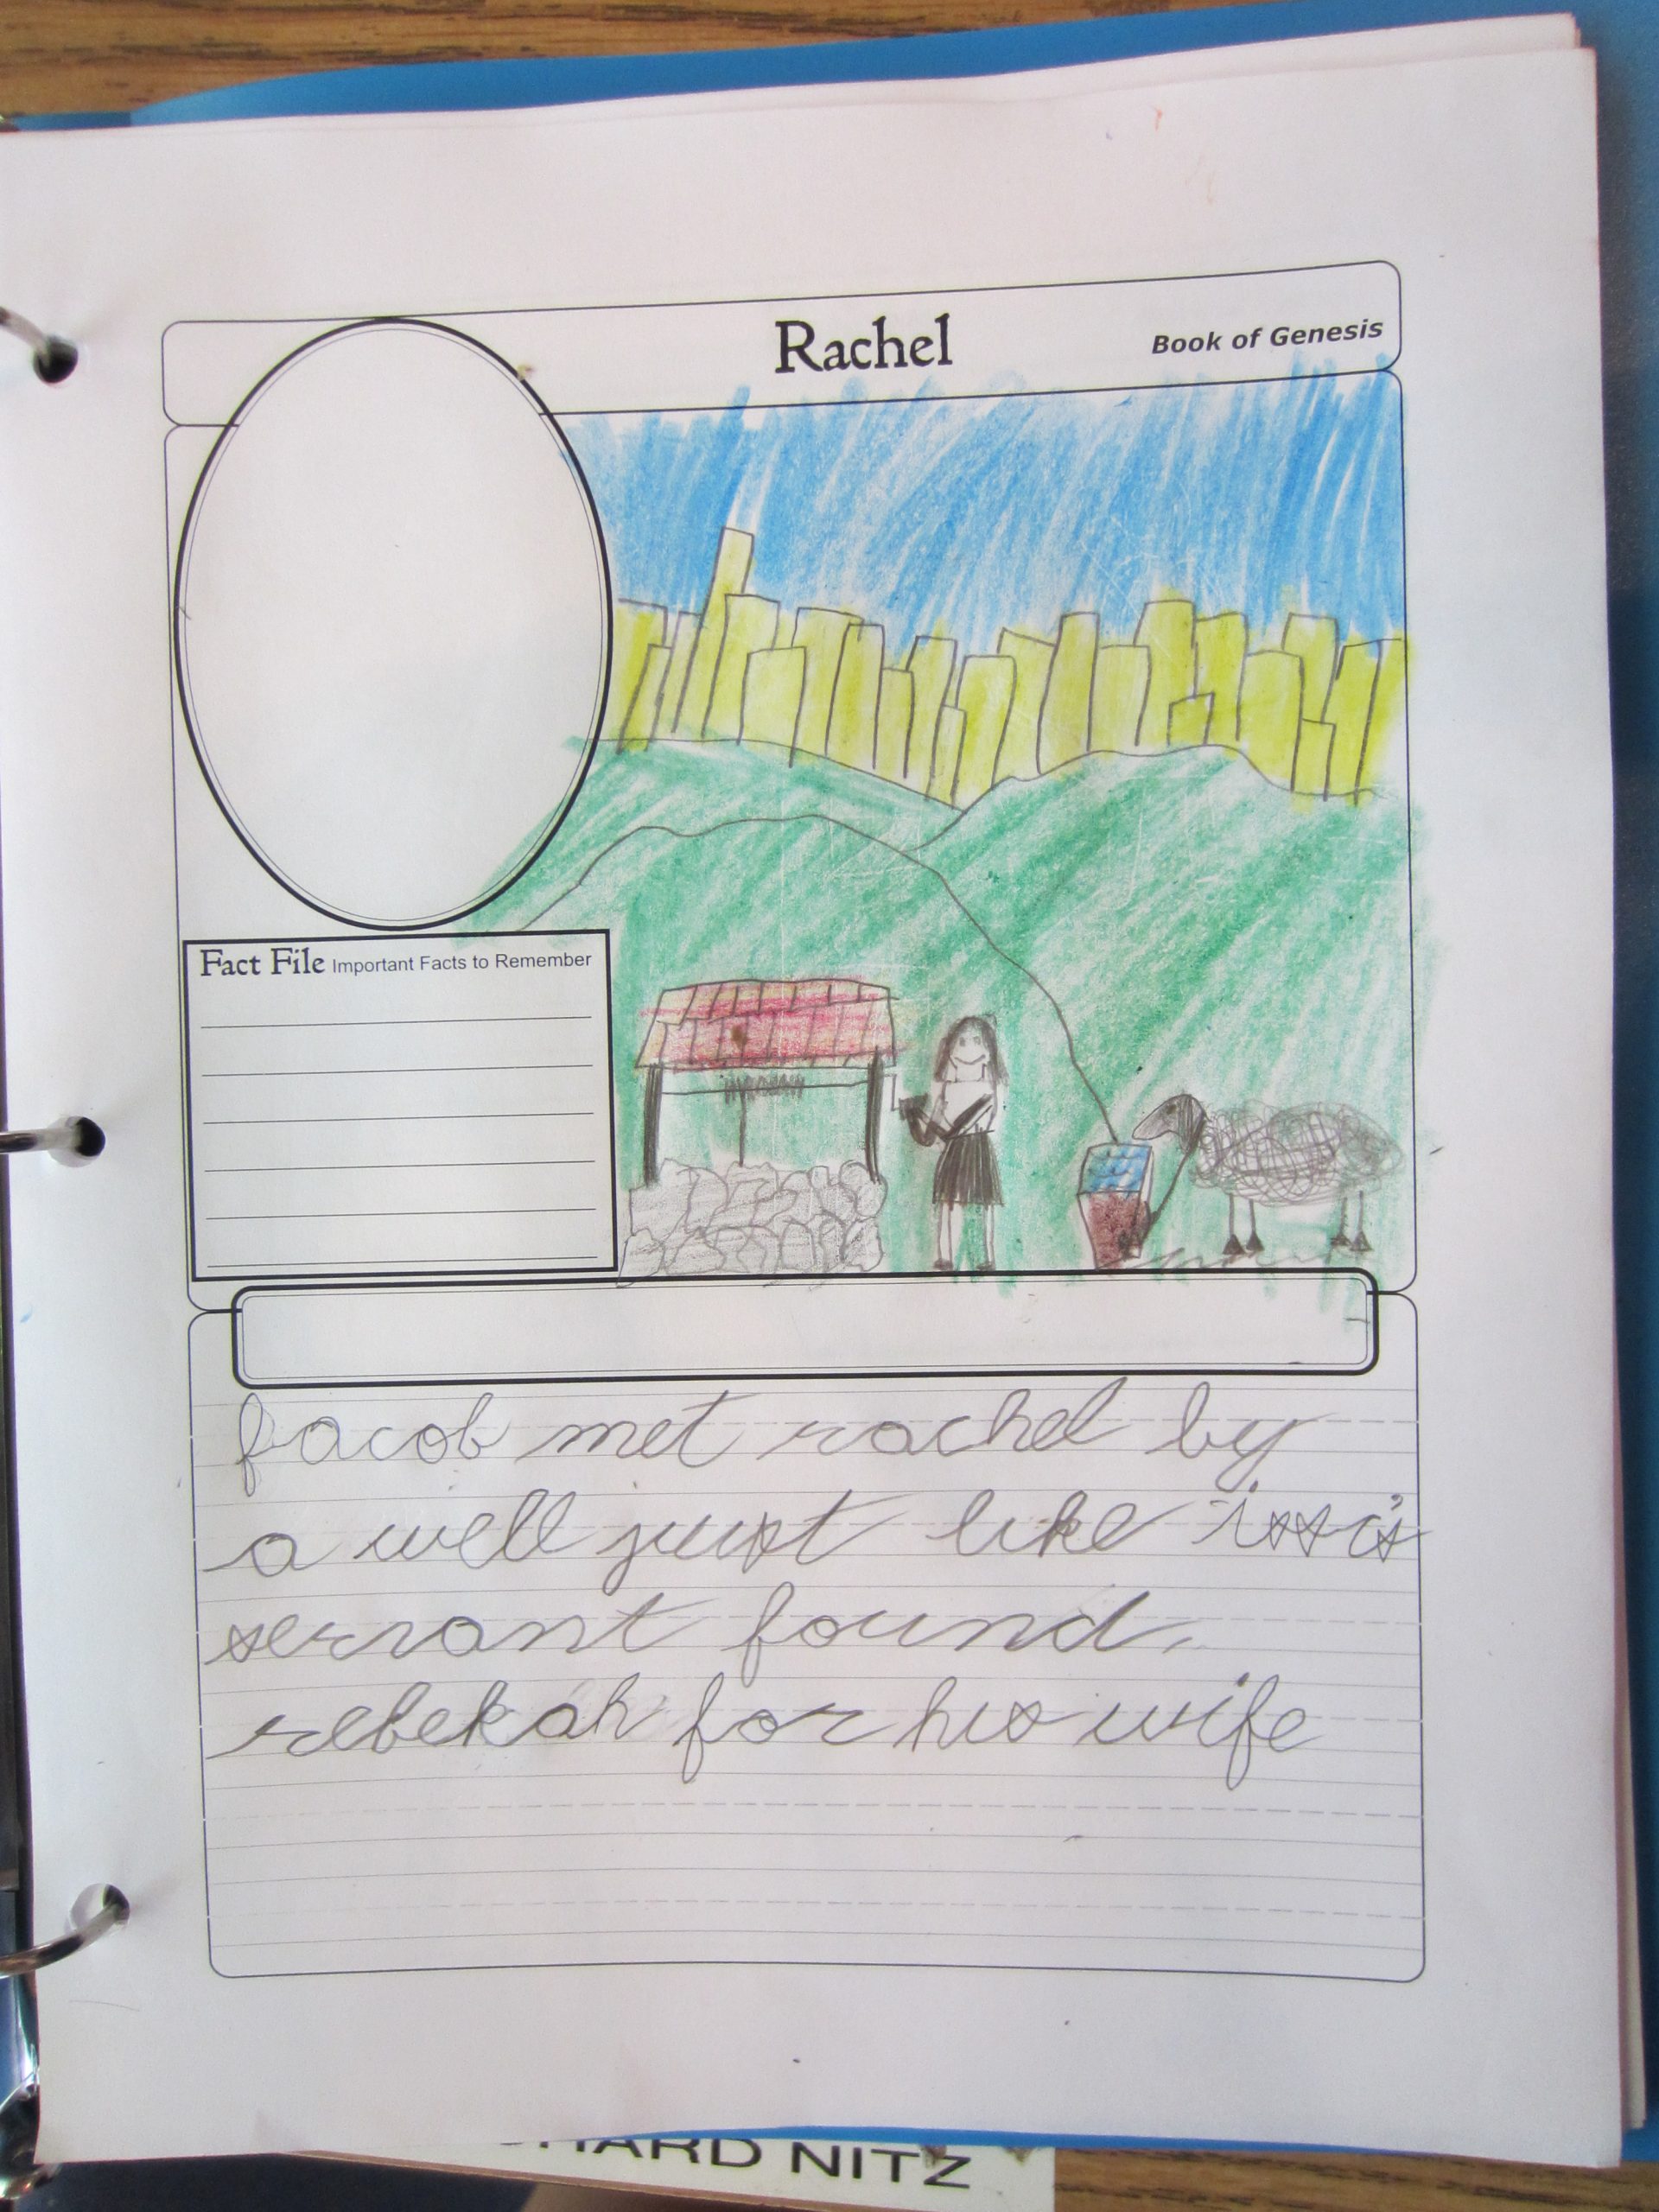 Rachel
Book of Genesis
Fact File Important Facts to Remember
Jacob met rachel by
a well just like issa's
servant found.
rebekah for his wife
HARD NITZ